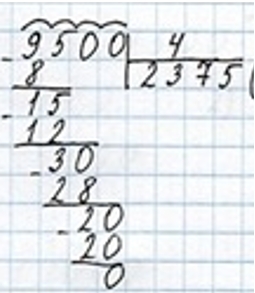 9500 4
- 8 2375
15
- 12
30
- 28
20
- 20
0